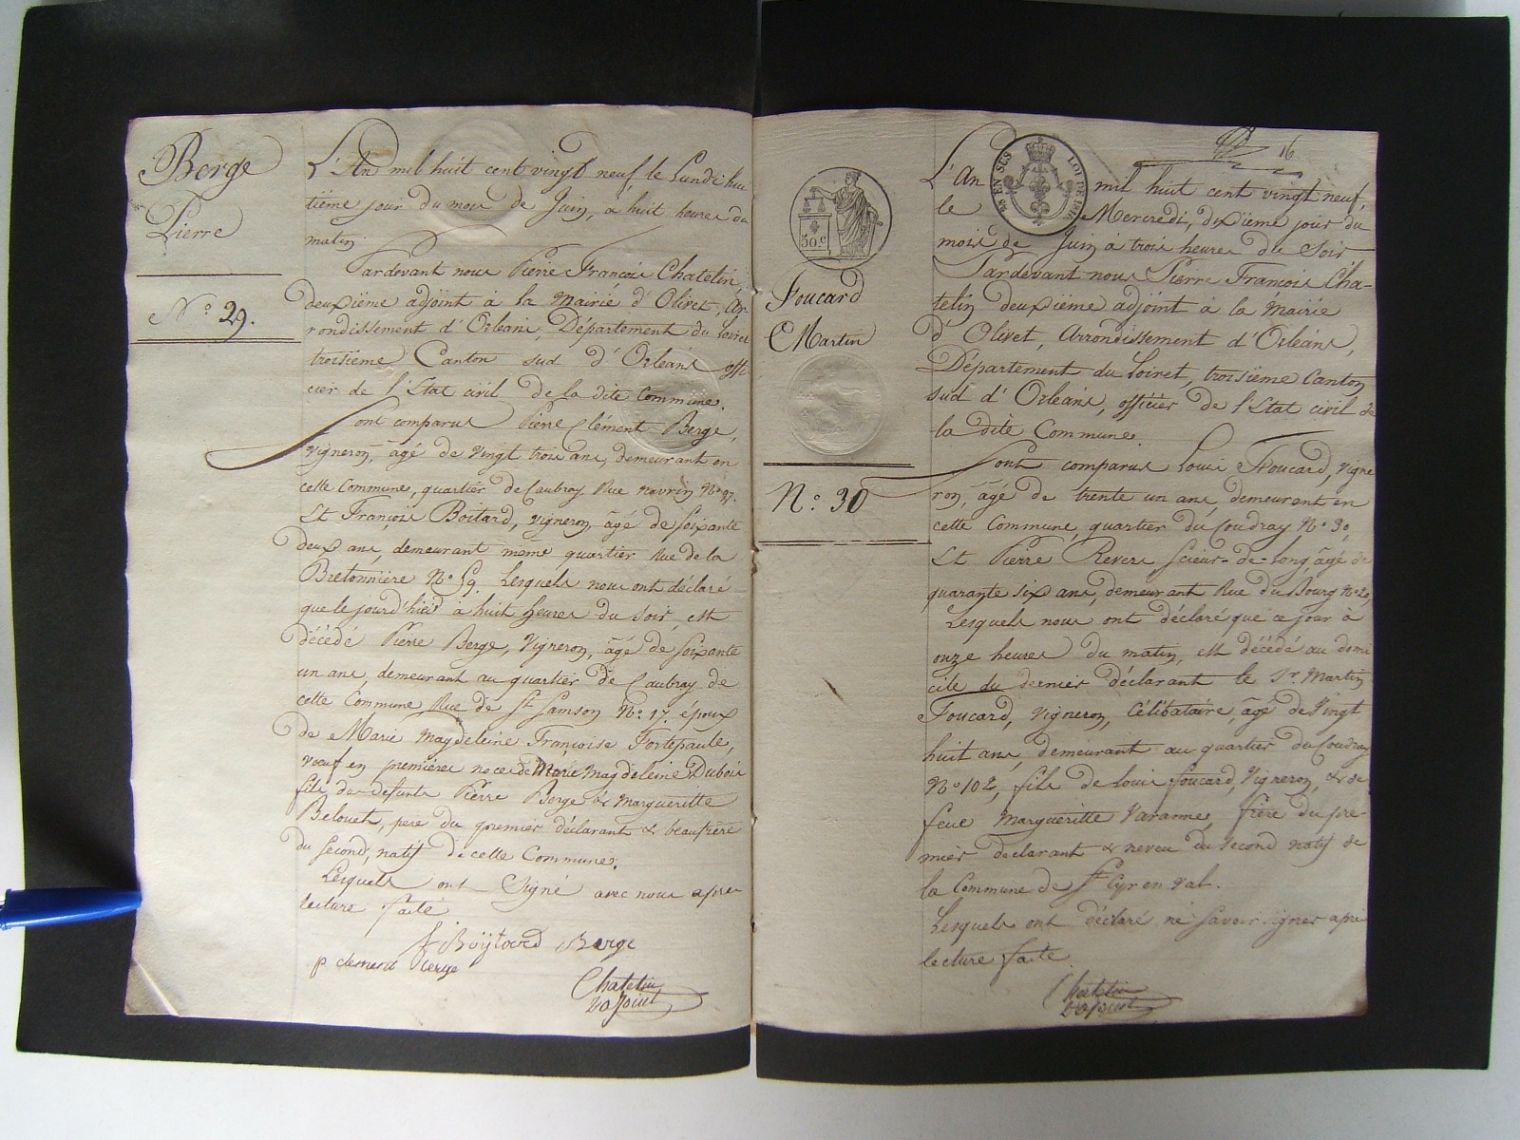 Berge
Pierre
N.º 29.
L'An mil huit cent vingt neuf le Lundi hui
tième jour du mois de Juin, à huit heures du
matin
Pardevant nous Pierre François Chatelin,
deuxième adjoint à la Mairie d'Olivet, ar
rondissement d'Orléans, Département du Loiret
troisième Canton sud d'Orléans offi
cier de l'Etat civil de la dite Commune.
Sont comparus Pierre Clément Berge,
vigneron, âgé de vingt trois ans, demeurant en
cette Commune, quartier de Caubray Rue Nº 37.
Et François Boitard, vigneron, âgé de soixante
deux ans, demeurant même quartier Rue de la
Bretonnière Nº 59. Lesquels nous ont déclaré
que le jourd'hier à huit heures du soir, est
décédé Pierre Berge, Vigneron, âgé de soixante
un ans, demeurant au quartier de Caubray de
cette Commune, Rue de St. Samson Nº 17. époux
de Marie Magdeleine Françoise Fortepaule,
veuf en premières noces de Marie Magdeleine Dubois
fils de defunts Pierre Berge & Margueritte
Belouet, pere du premier déclarant & beaufrère
du second, natif de cette Commune.
Lesquels ont Signé avec nous après
lecture faite
f Boÿtard Berge
p clement berge
Chatelin
adjoint
30.C
Foucard
Martin
N.º 30
EN SUS
LOI DE 1816
16
L'An mil huit cent vingt neuf,
le Mercredi, dixième jour du
mois de Juin à trois heures du Soir
Pardevant nous Pierre François Cha-
telin deuxième adjoint à la Mairie
d'Olivet, Arrondissement d'Orléans,
Département du Loiret, troisième Canton
sud d'Orléans, officier de l'Etat civil de
la dite Commune.
Sont comparus Louis Foucard, vigne
ron, âgé de trente un ans, demeurant en
cette Commune, quartier du Coudray Nº 30,
Et Pierre Revers Scieur-de-long, âgé de
quarante six ans, demeurant Rue du Bourg Nº 20,
Lesquels nous ont déclaré que ce jour à
onze heures du matin, est décédé au domi
cile du dernier déclarant le Sr. Martin
Foucard, vigneron, Célibataire, âgé de Vingt
huit ans, demeurant au quartier du Coudray
Nº 102, fils de Louis Foucard, Vigneron, & de
feue Margueritte Varanne, frère du pre-
mier déclarant & neveu du second natif de
la Commune de St Cyr en Val.
Lesquels ont déclaré ne savoir signer après
lecture faite.
Chatelin
adjoint